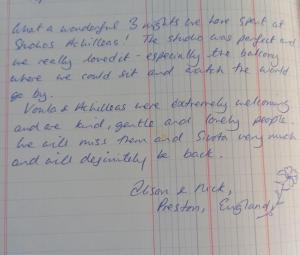 What a wonderful 3 nights we have spent at
Studios Achilleas! The studio was perfect and
we really loved it - especially the balcony
where we could sit and watch the world
go by.
Voula & Achilleas were extremely welcoming
and are kind, gentle and lovely people.
We will miss them and Sivota very much
and will definitely be back.
Alison & Nick,
Preston, England